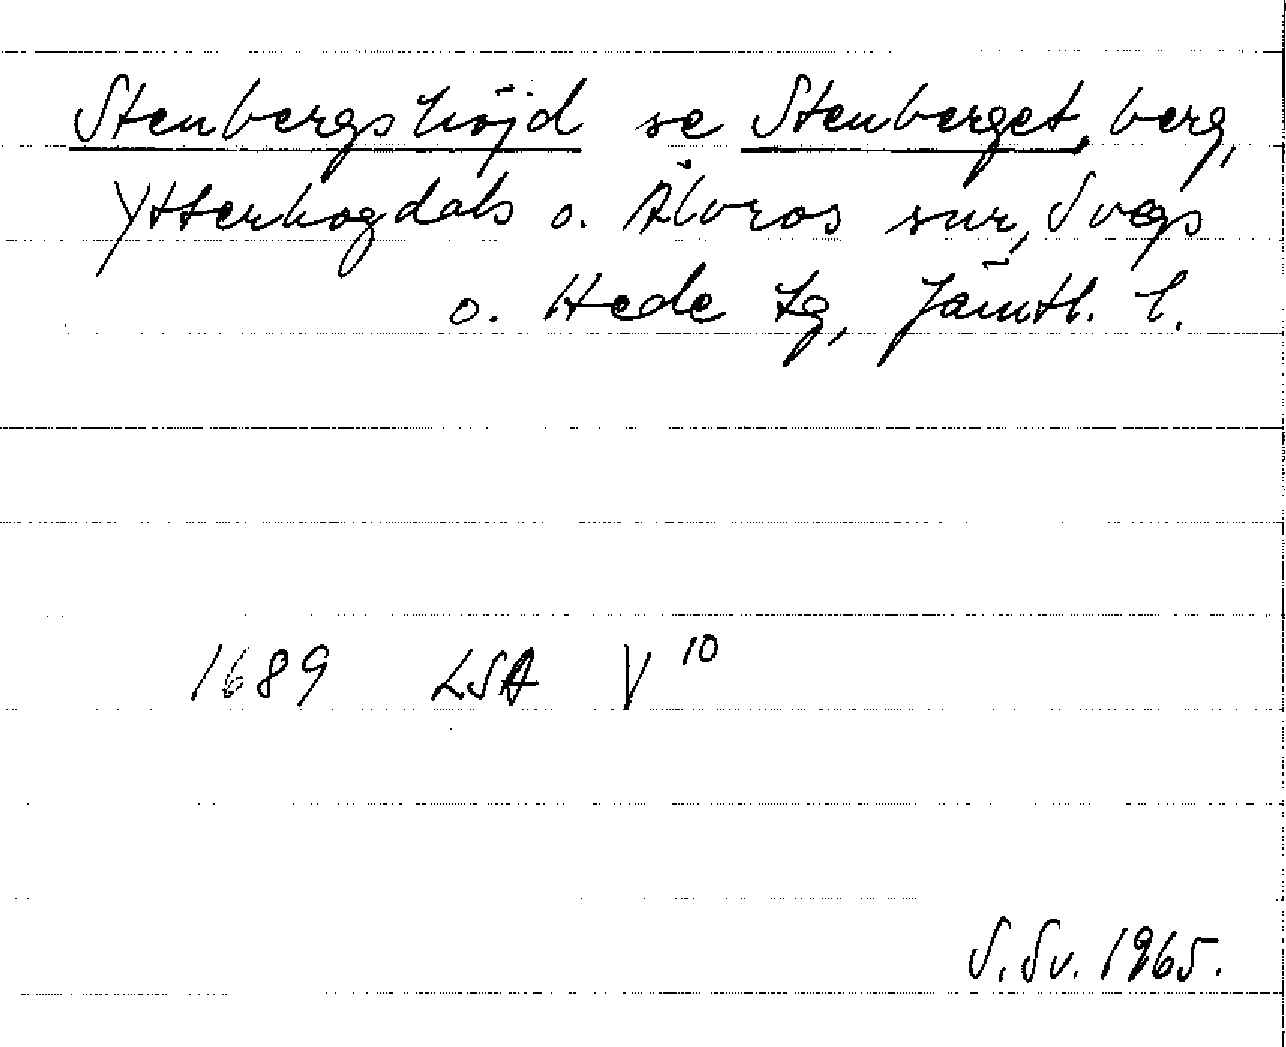 Stenbergshöjd se Stenberget, berg,
Ytterhogdals o. Älvros snr, Svegs
o. Hede tg, Jämtl. l.
1689 LSA V 10
S. Sv. 1965.